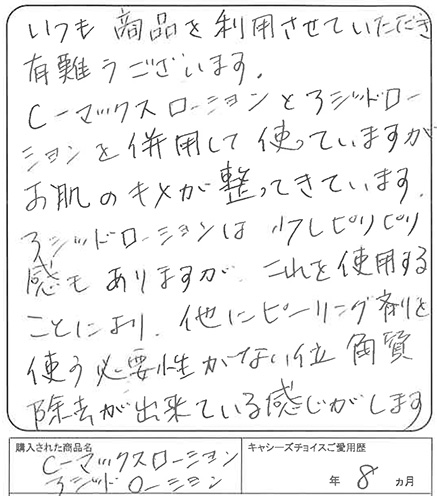 いつも商品を利用させていただき
有難うございます。
C-マックスローションと3ジッドロー
ションを併用して使っていますが
お肌のキメが整ってきています。
3ジッドローションは少しピリピリ
感もありますが、これを使用する
ことにより、他にピーリング剤を
使う必要性がない位角質
除去が出来ている感じがします
購入された商品名
C-マックスローション
3ジッドローション
キャシーズチョイスご愛用歴
年 8 ヵ月